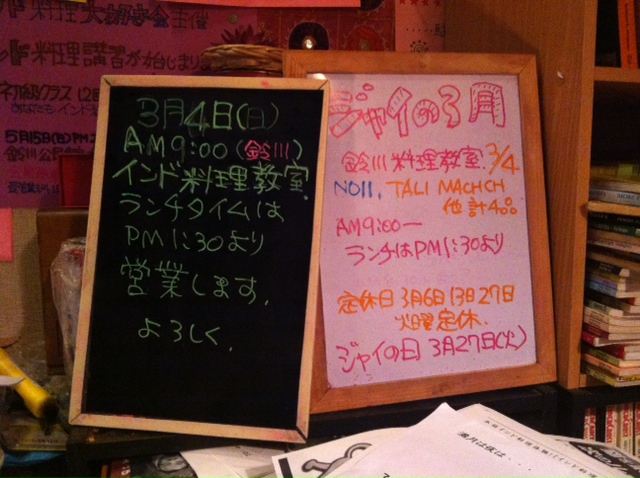 料理大好き会主催
ド料理講習が始まりま
初級クラス 12日
5月15日(日)PM2
3月4日(日)
AM9:00(鈴川)
インド料理教室.
ランチタイムは
PM1:30より
営業します.
よろしく.
ジャイの3月
鈴川料理教室.3/4
NO11. TALI MACHCH
他計4品
AM9:00ー
ランチはPM1:30より
定休日3月6日13日27日
火曜定休.
ジャイの日 3月27日(火)
満月は夜は・・・・